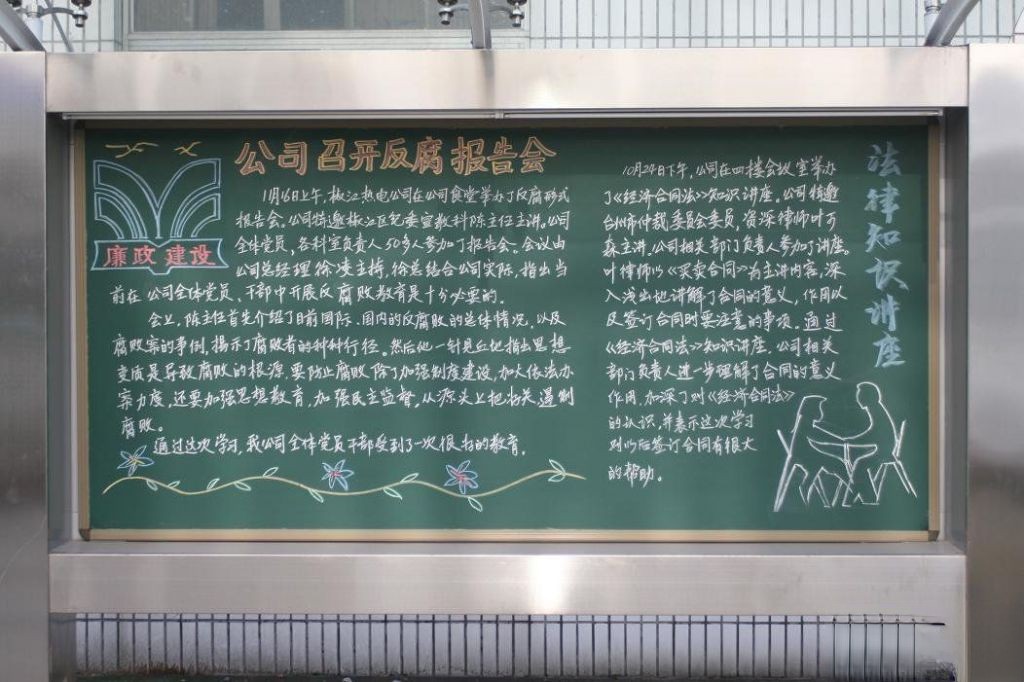 公司召开反腐报告会
廉政建设
11月16日上午，椒江热电公司在公司食堂举办了反腐形式
报告会。公司特邀椒江区纪委宣教科陈主任主讲。公司
全体党员，各科室负责人50多人参加了报告会。会议由
公司总经理徐凌主持，徐总结合公司实际，指出当
前在公司全体党员、干部中开展反腐败教育是十分必要的。
会上，陈主任首先介绍了目前国际、国内的反腐败的总体情况，以及
腐败案的事例，揭示了腐败者的种种行径。然后他一针见血地指出思想
变质是导致腐败的根源，要防止腐败除了加强制度建设，加大依法办
案力度，还要加强思想教育，加强民主监督，从源头上把好关遏制
腐败。
通过这次学习，我公司全体党员干部受到了一次很好的教育。
法律知识讲座
10月24日下午，公司在四楼会议室举办
了《经济合同法》知识讲座。公司特邀
台州市仲裁委员会委员，资深律师叶万
森主讲。公司相关部门负责人参加了讲座。
叶律师以《买卖合同》为主讲内容，深
入浅出地讲解了合同的意义，作用以
及签订合同时要注意的事项。通过
《经济合同法》知识讲座，公司相关
部门负责人进一步理解了合同的意义
作用，加深了对《经济合同法》
的认识，并表示这次学习
对以后签订合同有很大
的帮助。